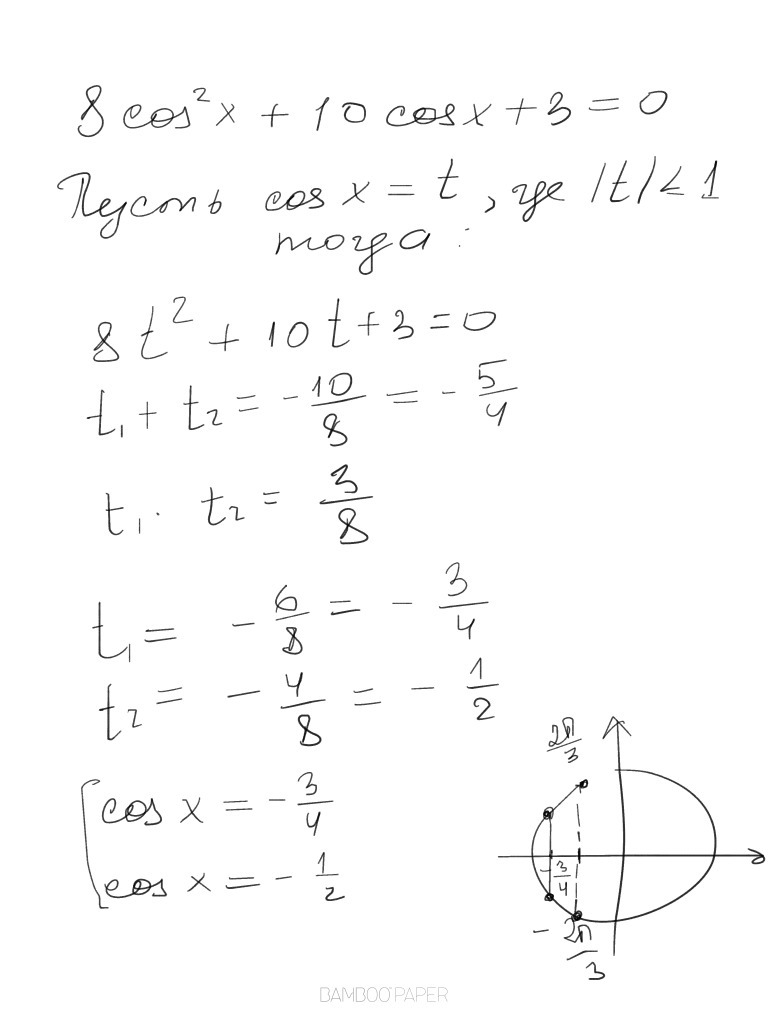 8 cos²x + 10 cosx + 3 = 0
Пусть cos x = t, где |t| < 1
тогда:
8t² + 10t + 3 = 0
t₁ + t₂ = -10/8 = -5/4
t₁ · t₂ = 3/8
t₁ = -6/8 = -3/4
t₂ = -4/8 = -1/2
cos x = -3/4
cos x = -1/2
2π/3
-3/4
-2π/3
BAMBOO PAPER